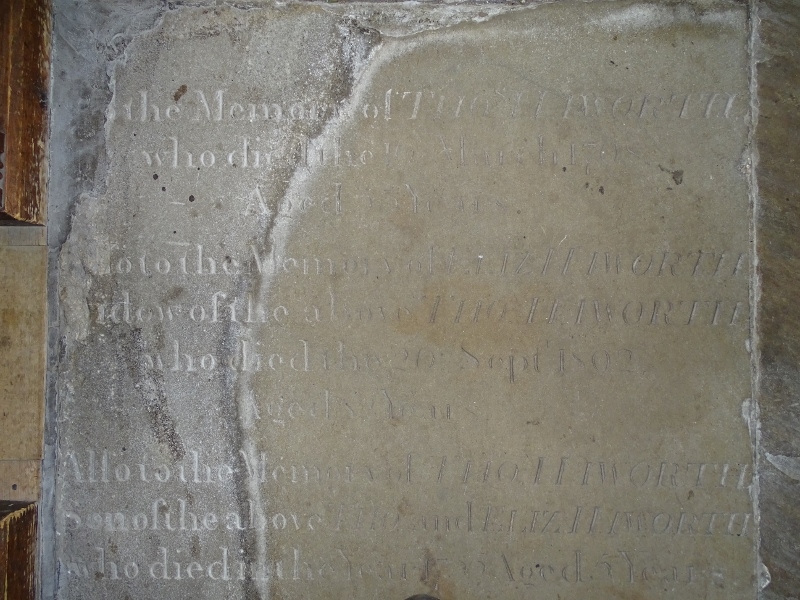 the Memory of THO: HEWORTH
who died the March
Aged Years
Also to the Memory of ELIZ: HEWORTH
Widow of the above THO: HEWORTH
who died the 20 Sept 1802
Aged Years
Also to the Memory of THO: HEWORTH
Son of the above THO: and ELIZ: HEWORTH
who died in the Year Aged Years